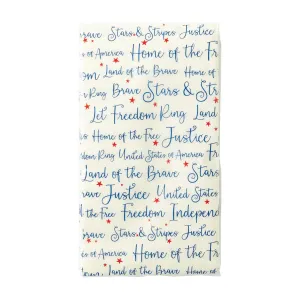 Brave Stars & Stripes Justice
of America Home of the F
Land of the Brave
Ring Brave Stars & S
Let Freedom Ring Land
Home of the Free Justice
Freedom Ring United States of America
Land of the Brave
Brave Justice United
Home of the Free Freedom Indepen
Brave Stars & Stripes Justice
of America Home of the F
Land of the Brave